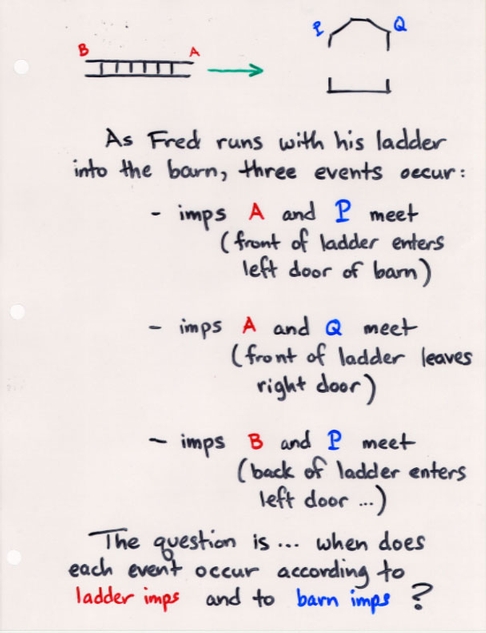 B A P Q
As Fred runs with his ladder
into the barn, three events occur:
- imps A and P meet
(front of ladder enters
left door of barn)
- imps A and Q meet
(front of ladder leaves
right door)
- imps B and P meet
(back of ladder enters
left door ...)
The question is ... when does
each event occur according to
ladder imps and to barn imps ?